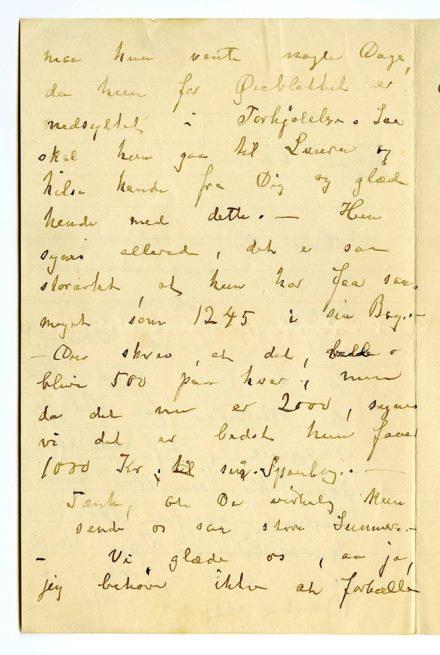 maa hun vente nogle Dage,
da hun for Øieblikket er
nedsyltet i Forkjølelse. Saa
skal hun gaa til Laura og
hilse hende fra Dig og glæde
hende med dette. — Hun
synes allerede, det er saa
storartet, at hun har faa saa
meget som 1245 i sin Bog. —
— Du skrev, at det,
blive 500 paa hver, men
da det nu er 2000, synes
vi det er bedst hun faaer
1000 Kr. til sin Sparebog. —
Tænk, at Du virkelig kan
sende os saa store Summer. —
— Vi glæde os, aa ja,
jeg behøver ikke at fortælle